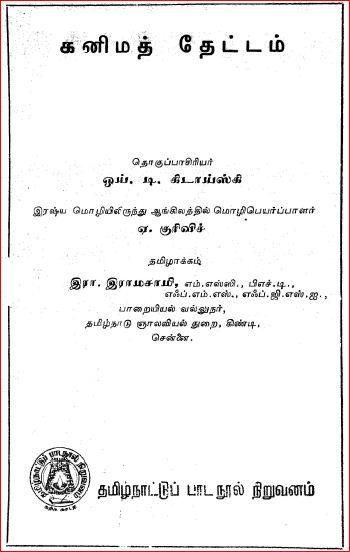 கனிமத் தேட்டம்
தொகுப்பாசிரியர்
ஒய். டி. கிடாய்ஸ்கி
இரஷ்ய மொழியிலிருந்து ஆங்கிலத்தில் மொழிபெயர்ப்பாளர்
ஏ. குரிவிச்
தமிழாக்கம்
இரா. இராமசாமி, எம்.எஸ்ஸி., பிஎச்.டி.,
எஃப்.எம்.எஸ்., எஃப்.ஜி.எஸ்.ஐ.,
பாறையியல் வல்லுநர்,
தமிழ்நாடு ஞாலவியல் துறை, கிண்டி,
சென்னை.
தமிழ்நாட்டுப் பாடநூல் நிறுவனம்
தமிழ்நாட்டுப் பாட நூல் நிறுவனம்